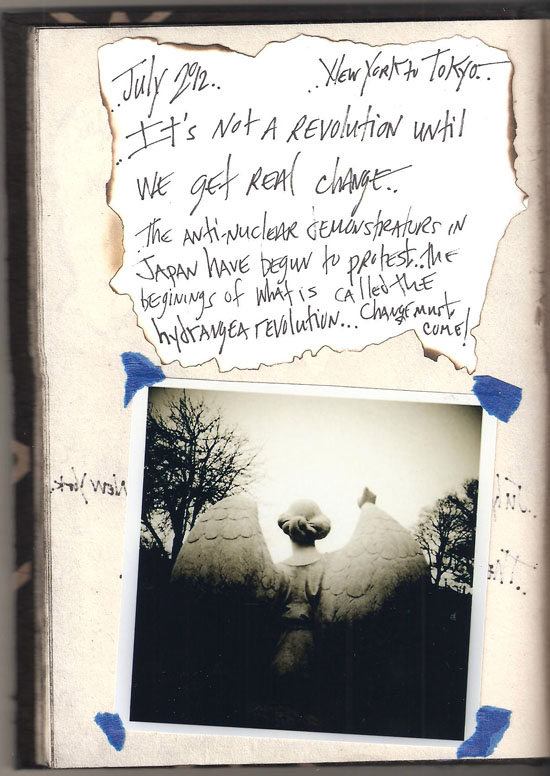 July 2012.. ..New York to Tokyo..
..It's not a revolution until
we get real change..
The anti-nuclear demonstrators in
Japan have begun to protest..the
beginings of what is called the
hydrangea revolution... Change must
come!
New York.
July
..The